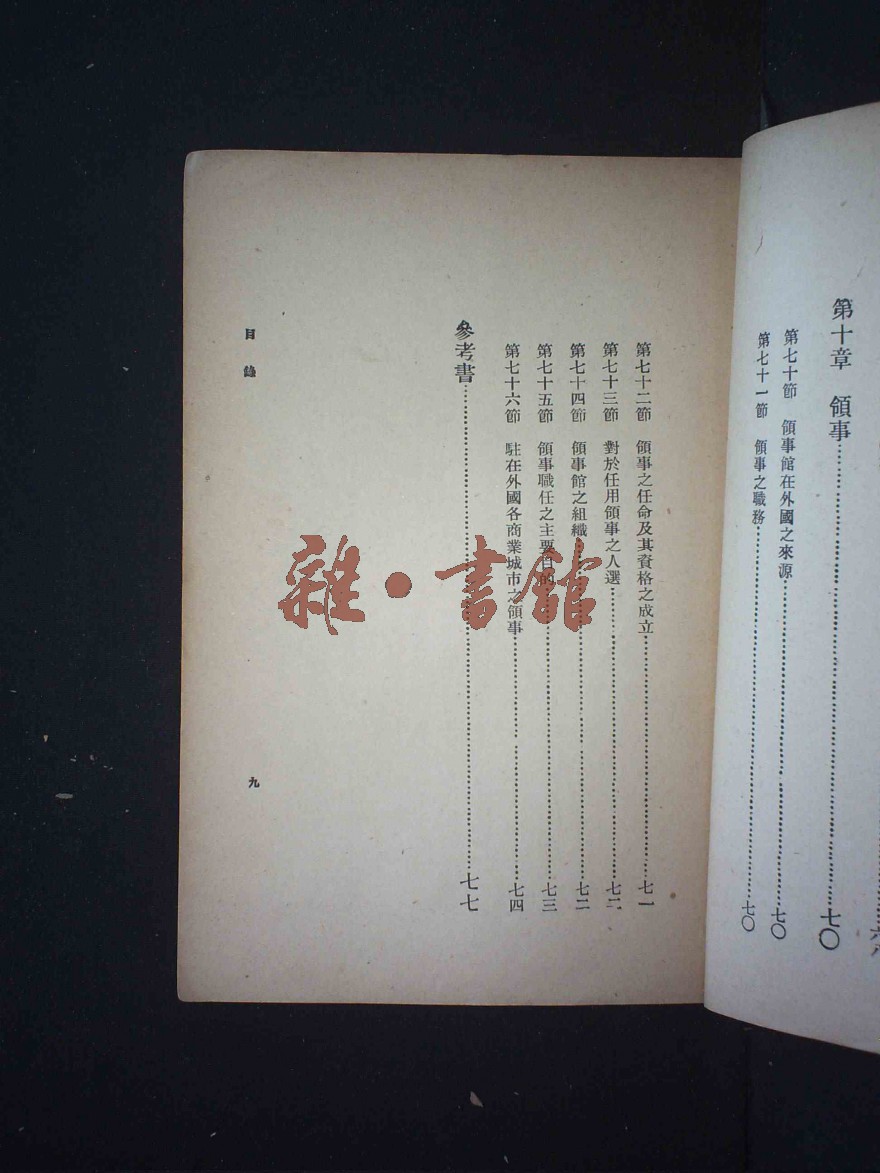 六八
第十章　領事……七〇
第七十節　領事館在外國之來源……七〇
第七十一節　領事之職務……七〇
第七十二節　領事之任命及其資格之成立……七一
第七十三節　對於任用領事之人選……七二
第七十四節　領事館之組織……七二
第七十五節　領事職任之主要目的……七三
第七十六節　駐在外國各商業城市之領事……七四
參考書……七七
目錄
九
雜·書館